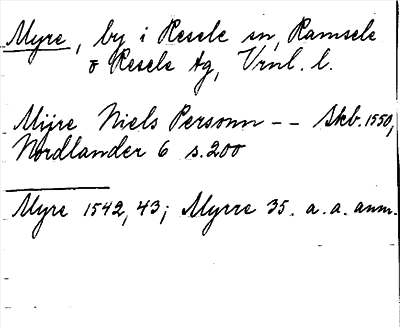 Myre, by i Resele sn, Ramsele
o Resele tg, Vrnl. l.
Myre Niels Personn -- Skb. 1550,
Nordlander 6 s. 200
Myre 1542, 43; Myrre 35. a. a. anm.